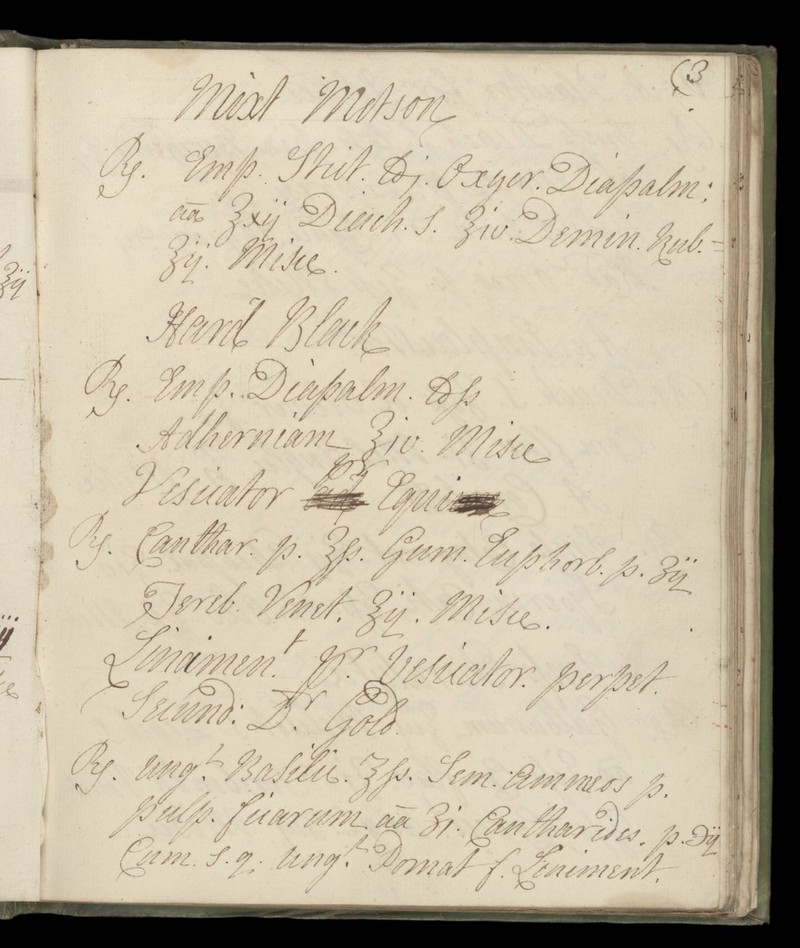 (3
Mixt Motson
℞. Emp. Stict. ℔j. Oxycr. Diapalm:
āā ℥xij Diach. S. ℥iv. Demin. Rub. =
℥ij. Misce.
Hard Black
℞. Emp. Diapalm. ℔ſs
Adherniam ℥iv. Misce
Vesicator pr Equi
℞. Canthar. p. ℥ſs. Gum. Euphorb. p. ʒij
Tereb. Venet. ℥ij. Misce.
Linimen.t pr. Vesicator. perpet.
Secund: Dr. Gold.
℞. Ungt. Basilic. ℥ſs. Sem. Ammeos p.
pulp. ficarum āā ʒj. Cantharides. p. ℈ij
Cum. S. q. Ungt. Pomat f. Liniment.
ʒij